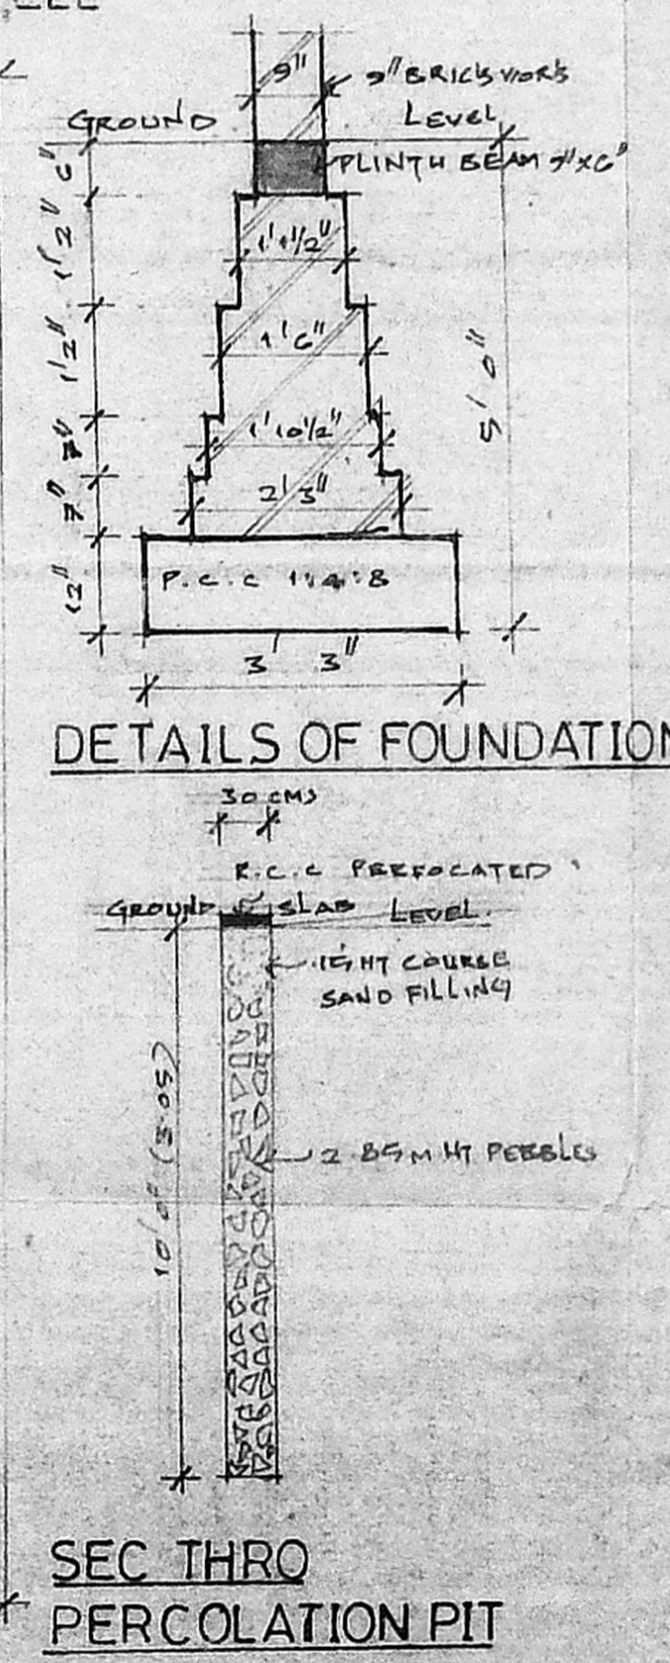 9"
9" BRICK WORK
GROUND LEVEL
PLINTH BEAM 9"X6"
6"
1'2"
1' 1 1/2"
1'2"
1' 6"
5' 0"
7"
1' 10 1/2"
7"
2' 3"
12"
P.C.C 1:4:8
3' 3"
DETAILS OF FOUNDATION
30 CMS
R.C.C PERFOCATED
GROUND SLAB LEVEL
HT COURSE
SAND FILLING
10'0" (3.05)
2.85 M HT PEBBLES
SEC THRO
PERCOLATION PIT